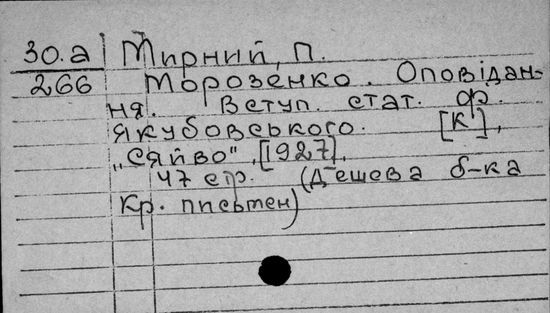 30.а Мирний, П.
266 Морозенко. Оповідан-
ня. Вступ. стат. Ф.
Якубовського. [К],
„Сяйво", [1927],
47 стр. (Дешева б-ка
кр. письмен)